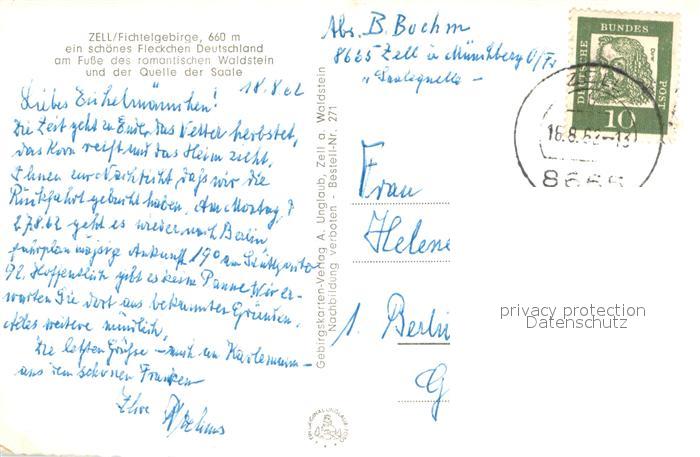 ZELL/Fichtelgebirge, 660 m
ein schönes Fleckchen Deutschland
am Fuße des romantischen Waldstein
und der Quelle der Saale
18.8.62
Liebes
Die Zeit geht zu Ende, das Wetter herbstet,
das Korn reift und das Heim zieht.
Ihnen zur Nachricht, daß wir die
Rückfahrt gebucht haben. Am Montag, d
27.8.62 geht es wieder nach Berlin,
fahrplanmäßige Ankunft 19° am
92. Hoffentlich gibt es keine Panne. Wir er-
warten Sie dort aus bekannten Gründen.
Alles weitere mündlich.
Die letzten Grüße - auch an
aus dem schönen Franken
Ihre
Gebirgskarten-Verlag A. Unglaub, Zell a. Waldstein
Nachbildung verboten - Bestell-Nr. 271
Abs. B. Boehm
8665 Zell ü. Münchberg O/Fr
"Saalequelle"
DEUTSCHE BUNDES POST
Dürer
10
ZELL
16.8.62-13
8665
Frau
Helene
1. Berli
G
privacy protection
Datenschutz